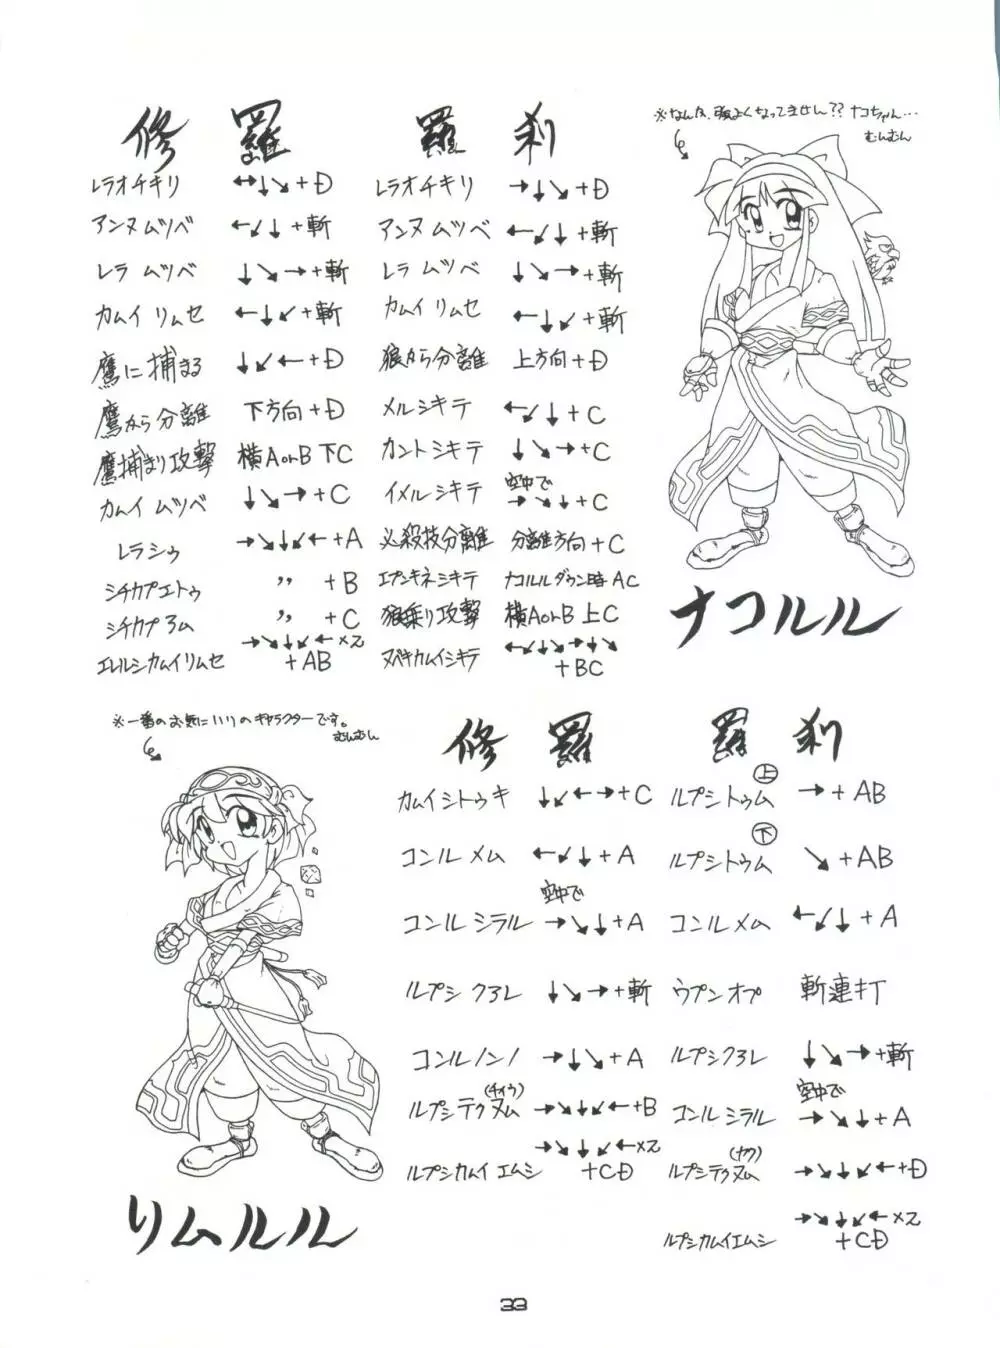 ※なんか、頭よくなってません?? ナコちゃん…
むんむん
修 羅
レラオチキリ ↔↓↘+D
アンヌムツベ ←↙↓+斬
レラ ムツベ ↓↘→+斬
カムイ リムセ ←↓↙+斬
鷹に捕まる ↓↙←+D
鷹から分離 下方向+D
鷹捕まり攻撃 横AorB 下C
カムイ ムツベ ↓↘→+C
レラシゥ →↘↓↙←+A
シチカプエトゥ 〃 +B
シチカプ ヨム 〃 +C
エレルシカムイリムセ →↘↓↙←×2+AB
羅 刹
レラオチキリ →↓↘+D
アンヌムツベ ←↙↓+斬
レラ ムツベ ↓↘→+斬
カムイ リムセ ←↓↙+斬
狼から分離 上方向+D
メルシキテ ←↙↓+C
カントシキテ ↓↘→+C
イメルシキテ 空中で→↘↓+C
必殺技分離 分離方向+C
エプンキネシキテ ナコルルダウン時AC
狼乗り攻撃 横AorB 上C
ヌペキカムイシキテ ←↙↓↘→↓↘+BC
ナコルル
※一番のお気にいりのキャラクターです。
むんむん
修 羅
カムイシトゥキ ↓↙←→+C
コンル メム ←↙↓+A
コンル シラル 空中で→↘↓+A
ルプシ クヨレ ↓↘→+斬
コンルノンノ →↓↘+A
ルプシテクヌム(チイウ) →↘↓↙←+B
ルプシカムイ エムシ →↘↓↙←×2+CD
羅 刹
ルプシトゥム上 →+AB
ルプシトゥム下 ↘+AB
コンルメム ←↙↓+A
ウプンオプ 斬連打
ルプシクヨレ ↓↘→+斬
コンルシラル 空中で→↘↓+A
ルプシテクヌム(ナウ) →↘↓↙←+D
ルプシカムイエムシ →↘↓↙←×2+CD
リムルル
33